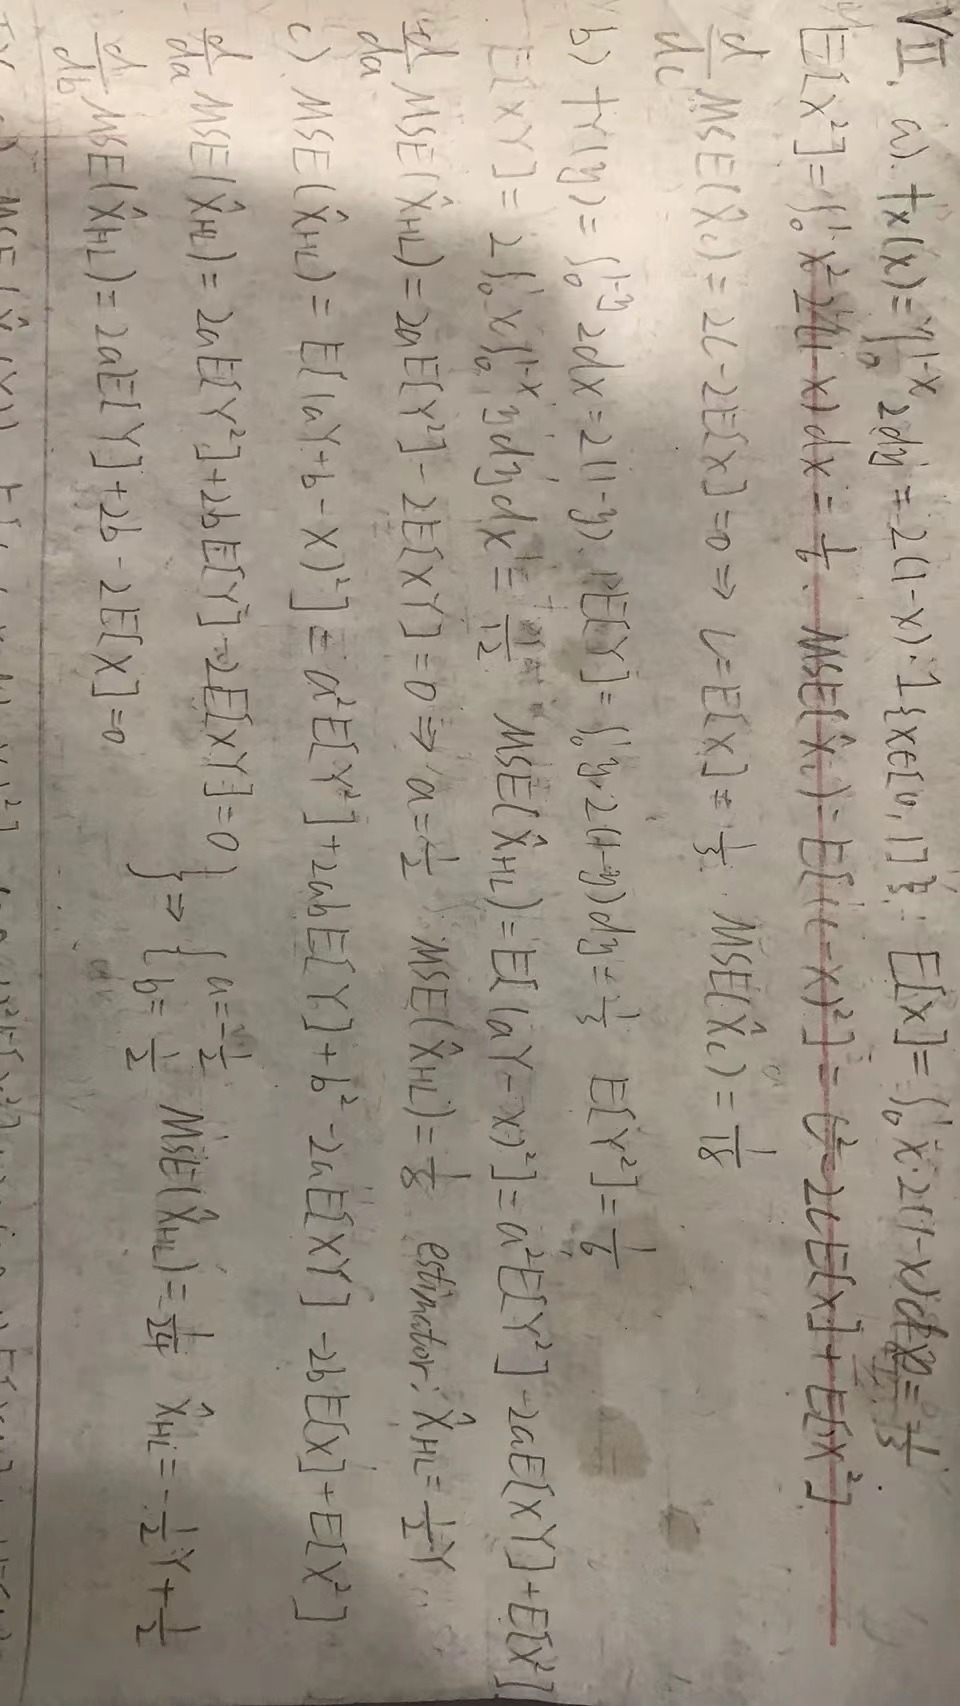 VII. a). fx(x) = ∫₀^{1-x} 2dy = 2(1-x)·1{x∈[0,1]}. E[X] = ∫₀¹ x·2(1-x)dx = 1/3.
E[X²] = ∫₀¹ x² 2(1-x) dx = 1/6. MSE(X̂c) = E[(c-X)²] = c² - 2cE[X] + E[X²].
d/dc MSE(X̂c) = 2c - 2E[X] = 0 ⇒ c = E[X] = 1/3. MSE(X̂c) = 1/18
b) fY(y) = ∫₀^{1-y} 2dx = 2(1-y). E[Y] = ∫₀¹ y·2(1-y)dy = 1/3 E[Y²] = 1/6
E[XY] = 2∫₀¹ x∫₀^{1-x} y dy dx = 1/12 MSE(X̂HL) = E[(aY-X)²] = a²E[Y²] - 2aE[XY] + E[X²]
d/da MSE(X̂HL) = 2aE[Y²] - 2E[XY] = 0 ⇒ a = 1/2 MSE(X̂HL) = 1/8 estimator: X̂HL = 1/2 Y
c) MSE(X̂HL) = E[(aY+b-X)²] = a²E[Y²] + 2abE[Y] + b² - 2aE[XY] - 2bE[X] + E[X²]
d/da MSE(X̂HL) = 2aE[Y²] + 2bE[Y] - 2E[XY] = 0 } ⇒ { a = -1/2 b = 1/2 MSE(X̂HL) = 1/24 X̂HL = -1/2 Y + 1/2
d/db MSE(X̂HL) = 2aE[Y] + 2b - 2E[X] = 0